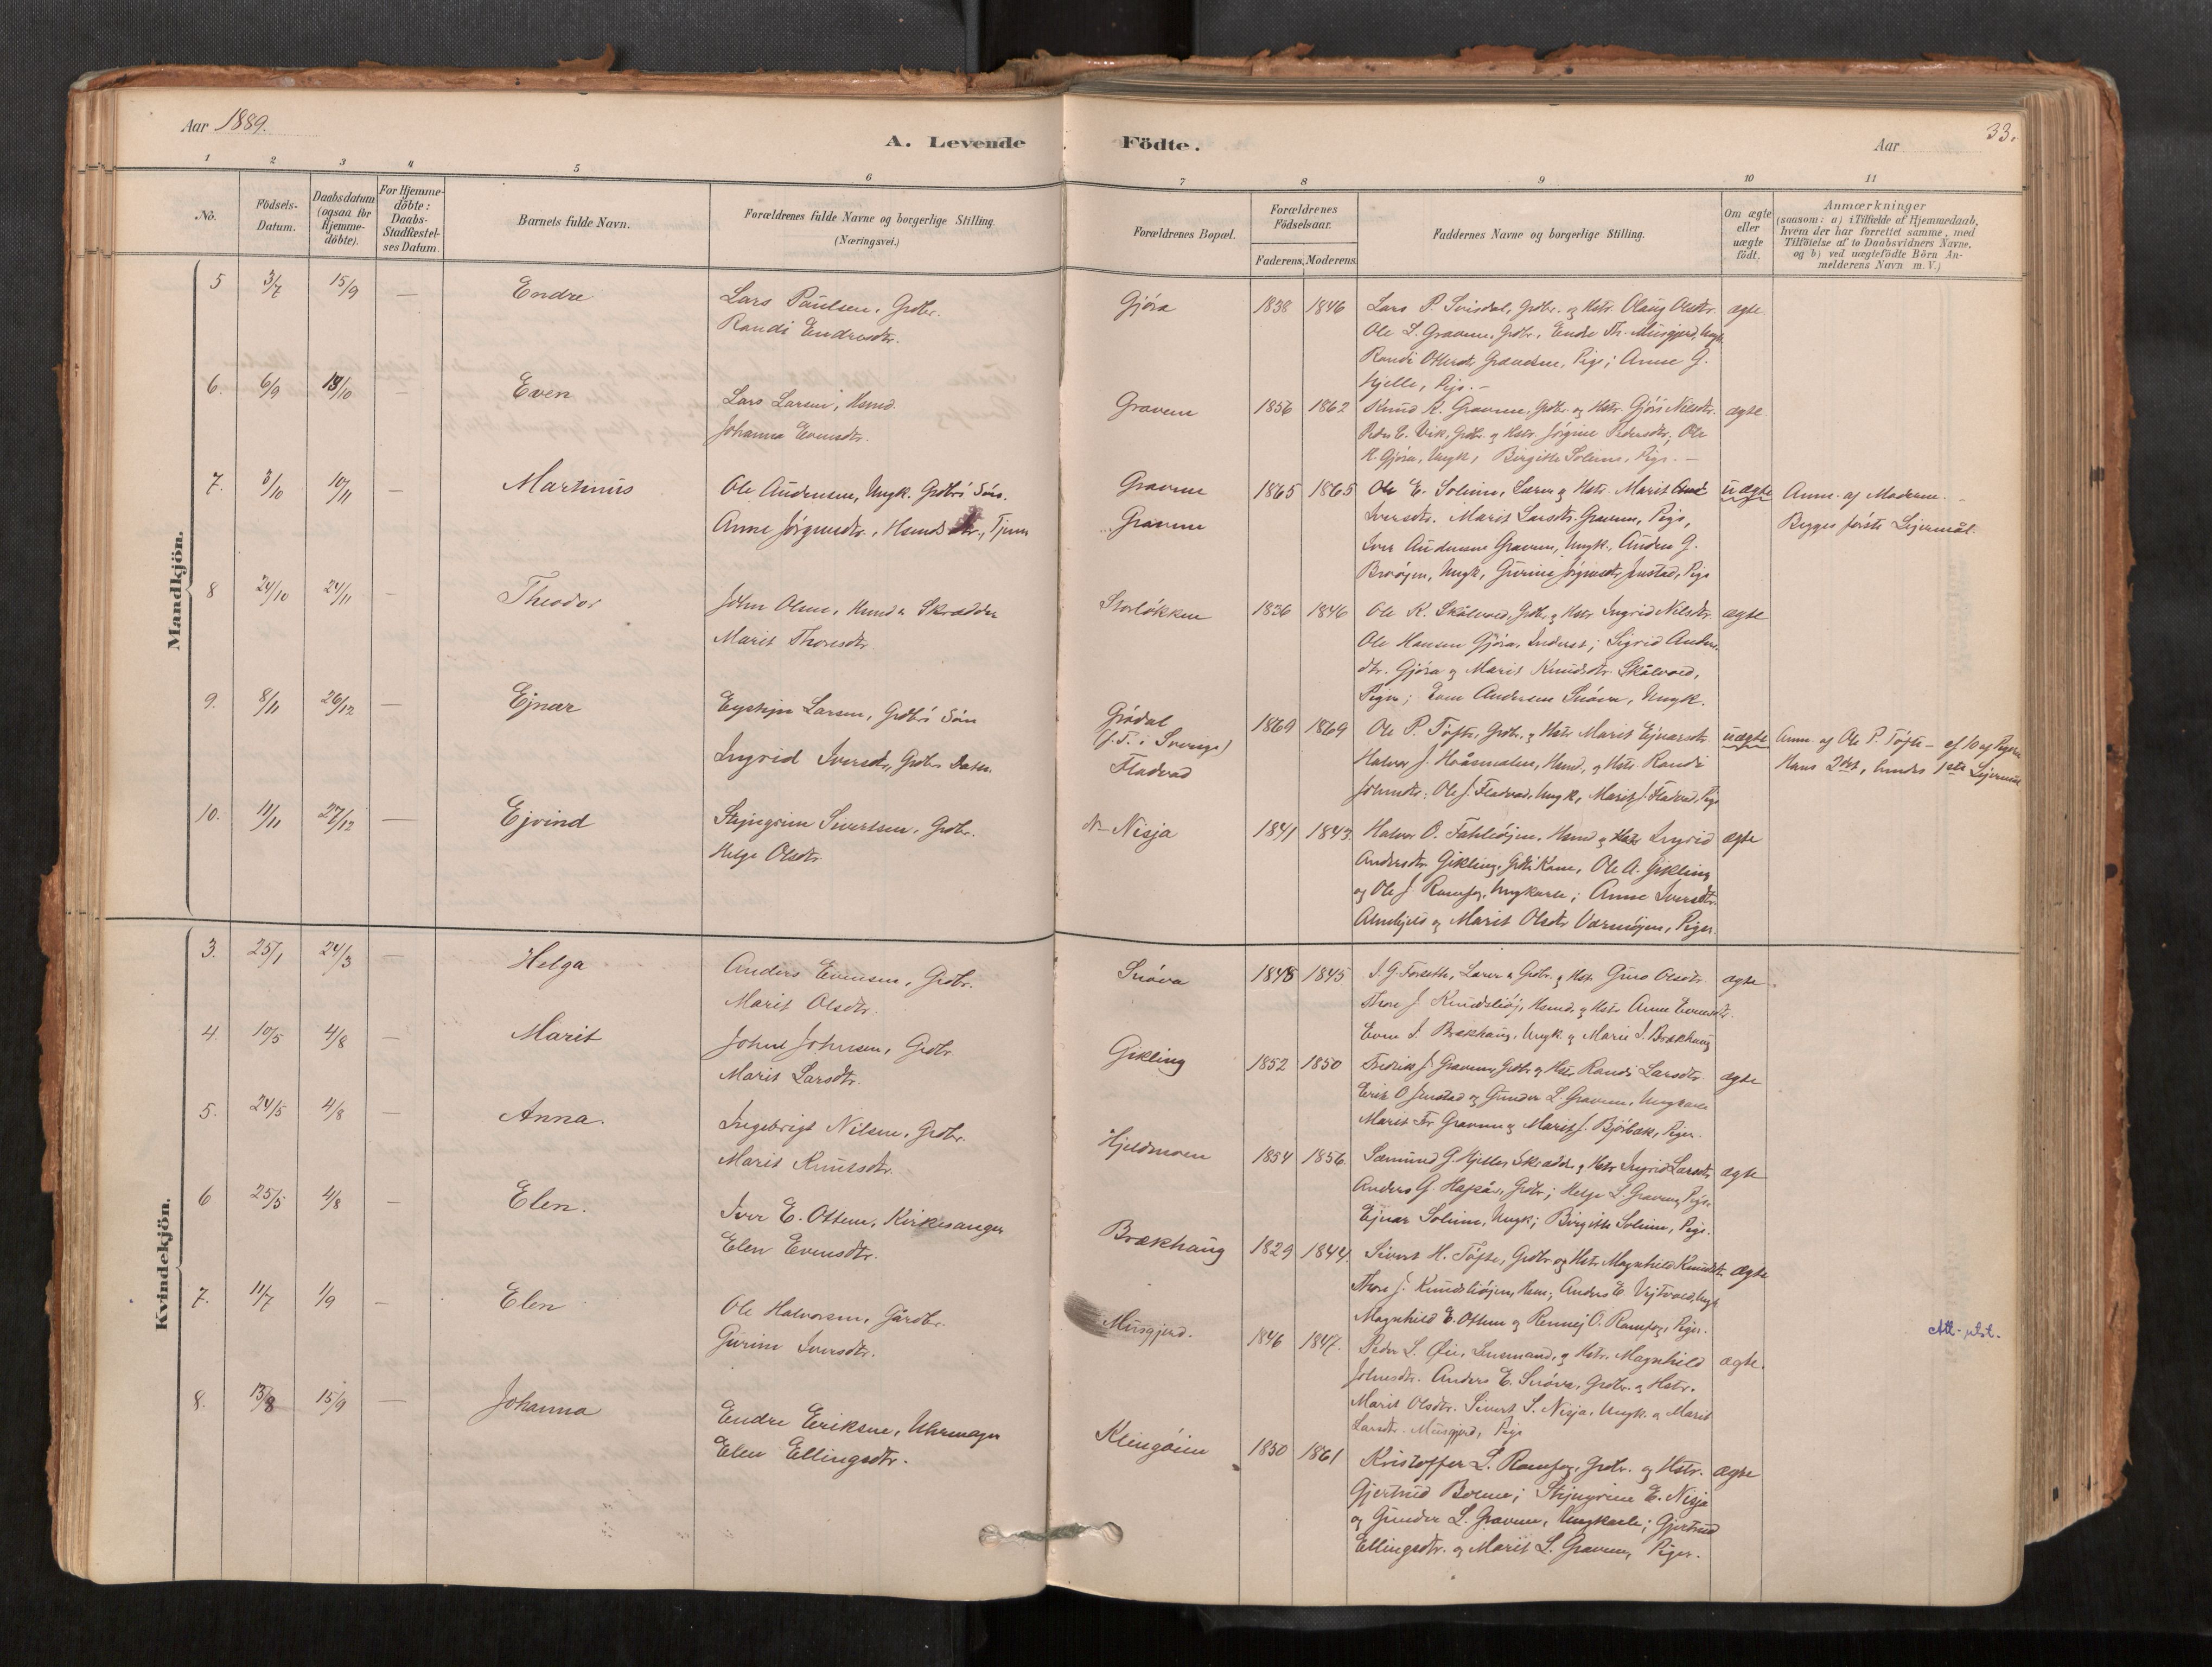 Aar 1889.
A. Levende Födte.
Aar
33.
1 2 3 4 5 6 7 8 9 10 11
No.
Födsels-Datum.
Daabsdatum (ogsaa for Hjemme-döbte).
For Hjemme-döbte: Daabs-Stadfæstel-ses Datum.
Barnets fulde Navn.
Forældrenes fulde Navne og borgerlige Stilling.
(Næringsvei.)
Forældrenes Bopæl.
Forældrenes Födselsaar.
Faderens. Moderens.
Faddernes Navne og borgerlige Stilling.
Om ægte eller uægte födt.
Anmærkninger
(saasom: a) i Tilfælde af Hjemmedaab,
hvem der har forrettet samme, med
Tilföielse af to Daabsvidners Navne,
og b) ved uægtefödte Börn An-
melderens Navn m. V.)
Mandkjön.
5 3/7 15/9 — Endre
Lars Paulsen, Grdbr.
Randi Endresdtr.
Gjóra 1838 1846
Lars P. Svisdal, Grdbr. og Hstr. Olaug Olsdtr.
Ole L. Gravem, Grdbr., Endre Th. Musgjerd, Ungk.
Randi Gravem, Pige; Anne G.
Hjelle, Pige. —
ægte
6. 6/9 13/10 — Even
Lars Larsen, Hsmd.
Johanna Evensdtr.
Gravem 1856 1862
Knud K. Gravem, Grdbr. og Hstr. Gjóri Nilsdtr.
Peder E. Vik, Grdbr. og Hstr. Jórgine Pedersdtr., Ole
K. Gjóra, Ungk., Birgitte Solem, Pige. —
ægte.
7. 3/10 10/11 — Martinus
Ole Andersen, Ungk. Grdbr's Són.
Anne Jórgensdtr., Hsmds dtr., Tjen
Gravem
Gravem
1865 1865
Ole E. Solem, Lærer og Hstr. Marit
Iversdtr. Marit Larsdtr. Gravem, Pige,
Iver Andersen Gravem, Ungk., Anders G.
Ungk., Gurine Jórgensdtr. Jenstad, Pige
uægte
Anm. af Moderen. —
Begges fórste Lejermål.
8 24/10 24/11 — Theodor
John Olsen, Hsmd & Skrædder
Marit Thoresdtr.
Storlókken 1836 1846
Ole K. Skålvold, Grdbr. og Hstr. Ingrid Nilsdtr.
Ole Hansen Gjóra, Inderst; Sigrid Anders-
dtr. Gjóra og Marit Knudsdtr. Skålvold,
Piger; Even Andersen Snóva, Ungk.
ægte
9. 8/11 26/12 — Ejnar
Eystejn Larsen, Grdbr's Són
Ingrid Iversdtr., Grdbr's Datter
Gródal
(f. T. i Sverige)
Fladvad
1869 1869
Ole P. Tófte, Grdbr. og Hstr. Marit Ejnarsdtr.
Halvor J. Håsmalen, Hsmd, og Hstr. Randi
Johnsdtr.; Ole J. Fladvad, Ungk., Marit J. Fladvad, Pige
uægte
Anm. af Ole P. Tófte
Hans 2det, hendes 1ste Lejermål
10. 11/11 27/12 — Ejvind
Stejngrim Sivertsen, Grdbr.
Helga Olsdtr.
N- Nisja 1841 1843.
Halvor O. Hsmd og Hstr. Ingrid
Andersdtr. Gikling, Grdbr's Kone, Ole A. Gikling
og Ole J. Romfog, Ungkarle; Anne Iversdtr.
Almskjeld og Marit Olsdtr. Piger.
ægte
Kvindekjön.
3. 25/1 24/3 — Helga
Anders Evensen, Grdbr.
Marit Olsdtr.
Snóva 1848 1845
J. G. Forseth, Lærer & Grdbr. og Hstr. Guro Olsdtr.
Thore J. Knudsliój, Hsmd, og Hstr. Anne Evensdtr.
Even I. Brækhaug, Ungk. og Marit I. Brækhaug
ægte
4. 10/5 4/8 — Marit
John Johnsen, Grdbr.
Marit Larsdtr.
Gikling 1852 1850
Fredrik J. Gravem, Grdbr. og Hstr. Randi Larsdtr.
Erik O. Jenstad og Gunder L. Gravem, Ungkarle
Marit Fr. Gravem og Marit J. Bjórbæk, Piger.
ægte
5. 24/5 4/8 — Anna.
Ingebrigt Nilsen, Grdbr.
Marit Knutsdtr.
Hjeldmoen 1854 1856.
Sæmund G. Hjelle, Skrædder og Hstr. Ingrid Larsdtr.
Anders G. Grdbr.; Helge L. Gravem, Pige.
Ejnar Solem, Ungk; Birgitte Solem, Pige.
ægte
6 25/5 4/8 — Elen.
Iver E. Ottem, Kirkesanger
Elen Evensdtr.
Brækhaug 1829 1844.
Sivert H. Tófte, Grdbr. og Hstr. Magnhild Knudsdtr.
Thore J. Knudsliójen, Hsm., Anders E. Vejtvold, Ungk.
Magnhild E. Ottem og Rennej O. Romfog, Piger.
ægte
7. 11/7 1/9 — Elen
Ole Halvorsen, Gårdbr.
Gurine Iversdtr.
Musgjerd. 1846 1847.
Peder L. Øie, Lensmand, og Hstr. Magnhild
Johnsdtr. Anders E. Snóva, Grdbr. og Hstr.
Marit Olsdtr. Sivert S. Nisja, Ungk. og Marit
Larsdtr. Musgjerd, Pige
ægte.
Att. utst.
8. 13/8 15/9 — Johanna
Endre Eriksen, Uhrmager
Elen Ellingsdtr.
Klingóien 1850 1861
Kristoffer L. Romfog, Grdbr. og Hstr.
Gjertrud Stejngrim E. Nisja
og Gunder L. Gravem, Ungkarle; Gjertrud
Ellingsdtr. og Marit L. Gravem, Piger.
ægte